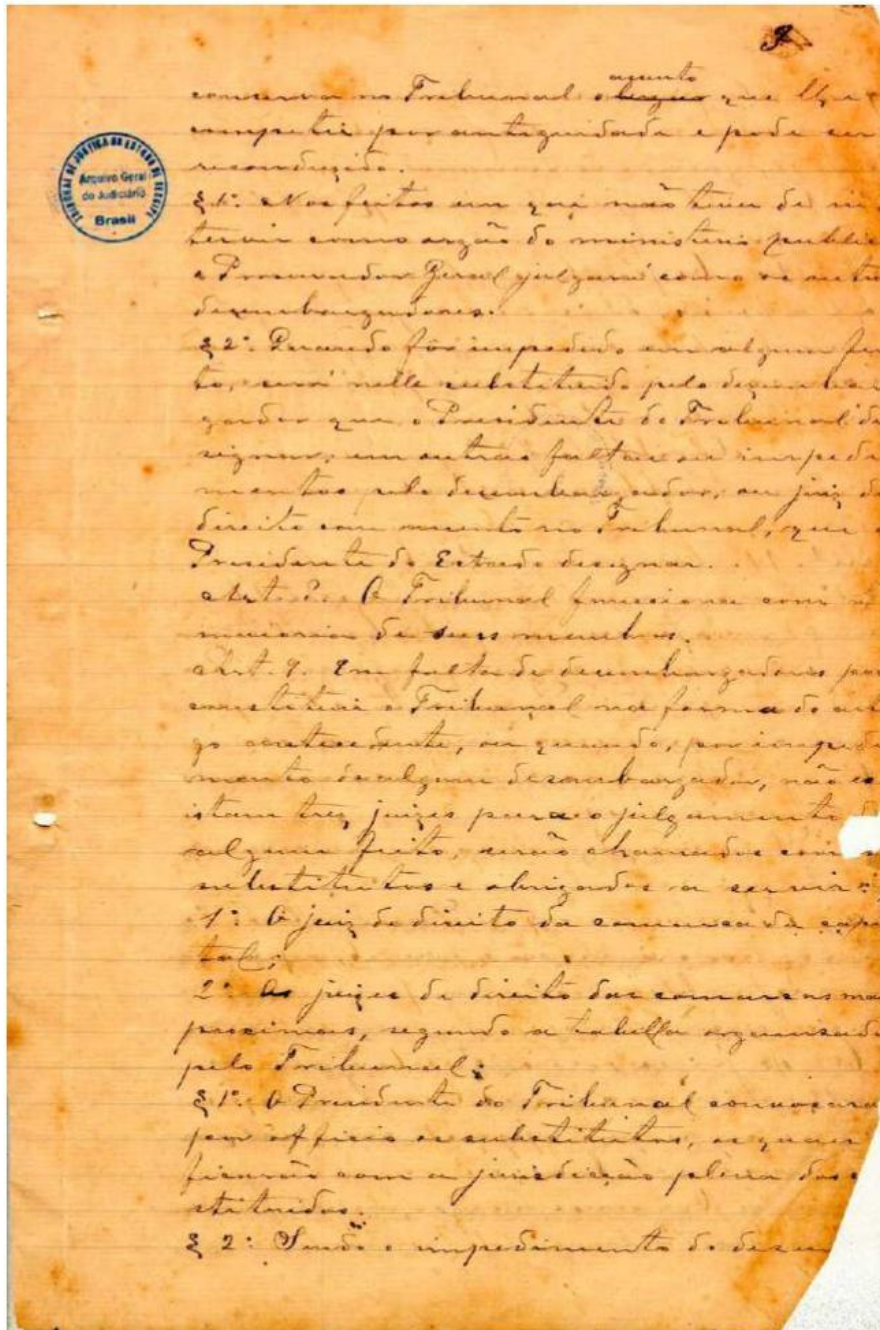 9
assento
conserva no Tribunal o lugar que lhe
competir por antiguidade e pode ser
reconduzido.
§ 1º. Nos feitos em que não tever de in
tervir como orgão do ministerio public
o Procurador Geral julgará como os outro
desembargadores.
§ 2º. Quando fôr impedido em algum fei
to, será nelle substituido pelo desembar
gador que o Presidente do Tribunal de
signar, em outras faltas ou impedi
mentos pelo desembargador, ou juiz de
direito com assento no Tribunal, que o
Presidente do Estado designar.
Art. 8. O Tribunal funcciona com a
maioria de seus membros.
Art. 9. Em falta de desembargadores par
constituir o Tribunal na forma do arti
go antecedente, ou quando, por impedi
mento de algum desembargador, não ex
istam trez juizes para o julgamento d
algum feito, serão chamados como
substitutos e obrigados a servir:
1º. O juiz de direito da comarca da capi
tal;
2º. Os juizes de direito das comarcas mai
proximas, segundo a tabella organisada
pelo Tribunal;
§ 1º. O Presidente do Tribunal convocará
por officio os substitutos, os quaes
ficarão com a jurisdicção plena dos
stituidos.
§ 2º. Sendo o impedimento do desem
TRIBUNAL DE JUSTIÇA DO ESTADO DE SERGIPE
Arquivo Geral
do Judiciário
Brasil